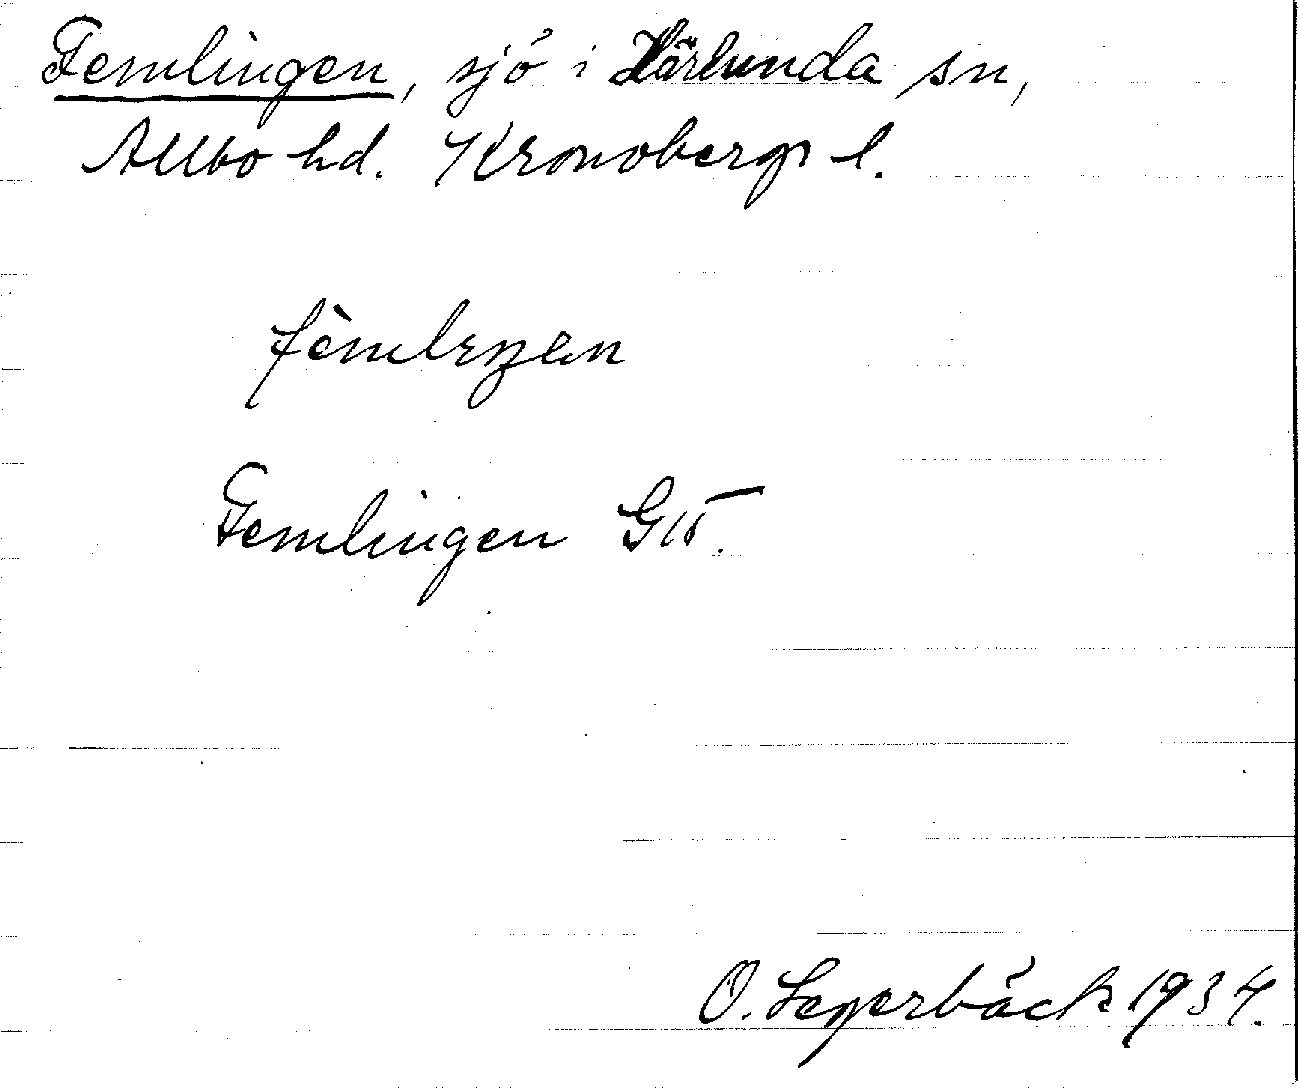 Femlingen, sjö i Härlunda sn,
Allbo hd. Kronobergs l.
fèmlıŋen
Femlingen GK.
O. Segerbäck 1934.